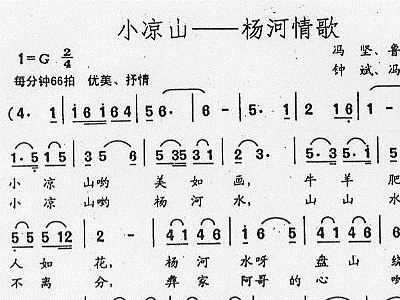 小凉山——杨河情歌
1=G 2/4
冯 坚、鲁
每分钟66拍 优美、抒情
钟 斌、冯
(4· 1 | i6 i6 64 | 56· | 6 - | 5· 1 | 2 16 |
1·5 15 | 35 56 | 5 35 31 | 2 3· | 5·3 5·1 |
小 凉 山哟 美 如 画, 牛 羊 肥
小 凉 山哟 杨 河 水, 山 山 水
55 5 12 | 2 - | 41 46 | 1 26 | 5· 0 | 41 46 |
人 如 花, 杨 河 水呀 盘 山 绕
不 离 分, 彝 家 阿哥 的 心 哟